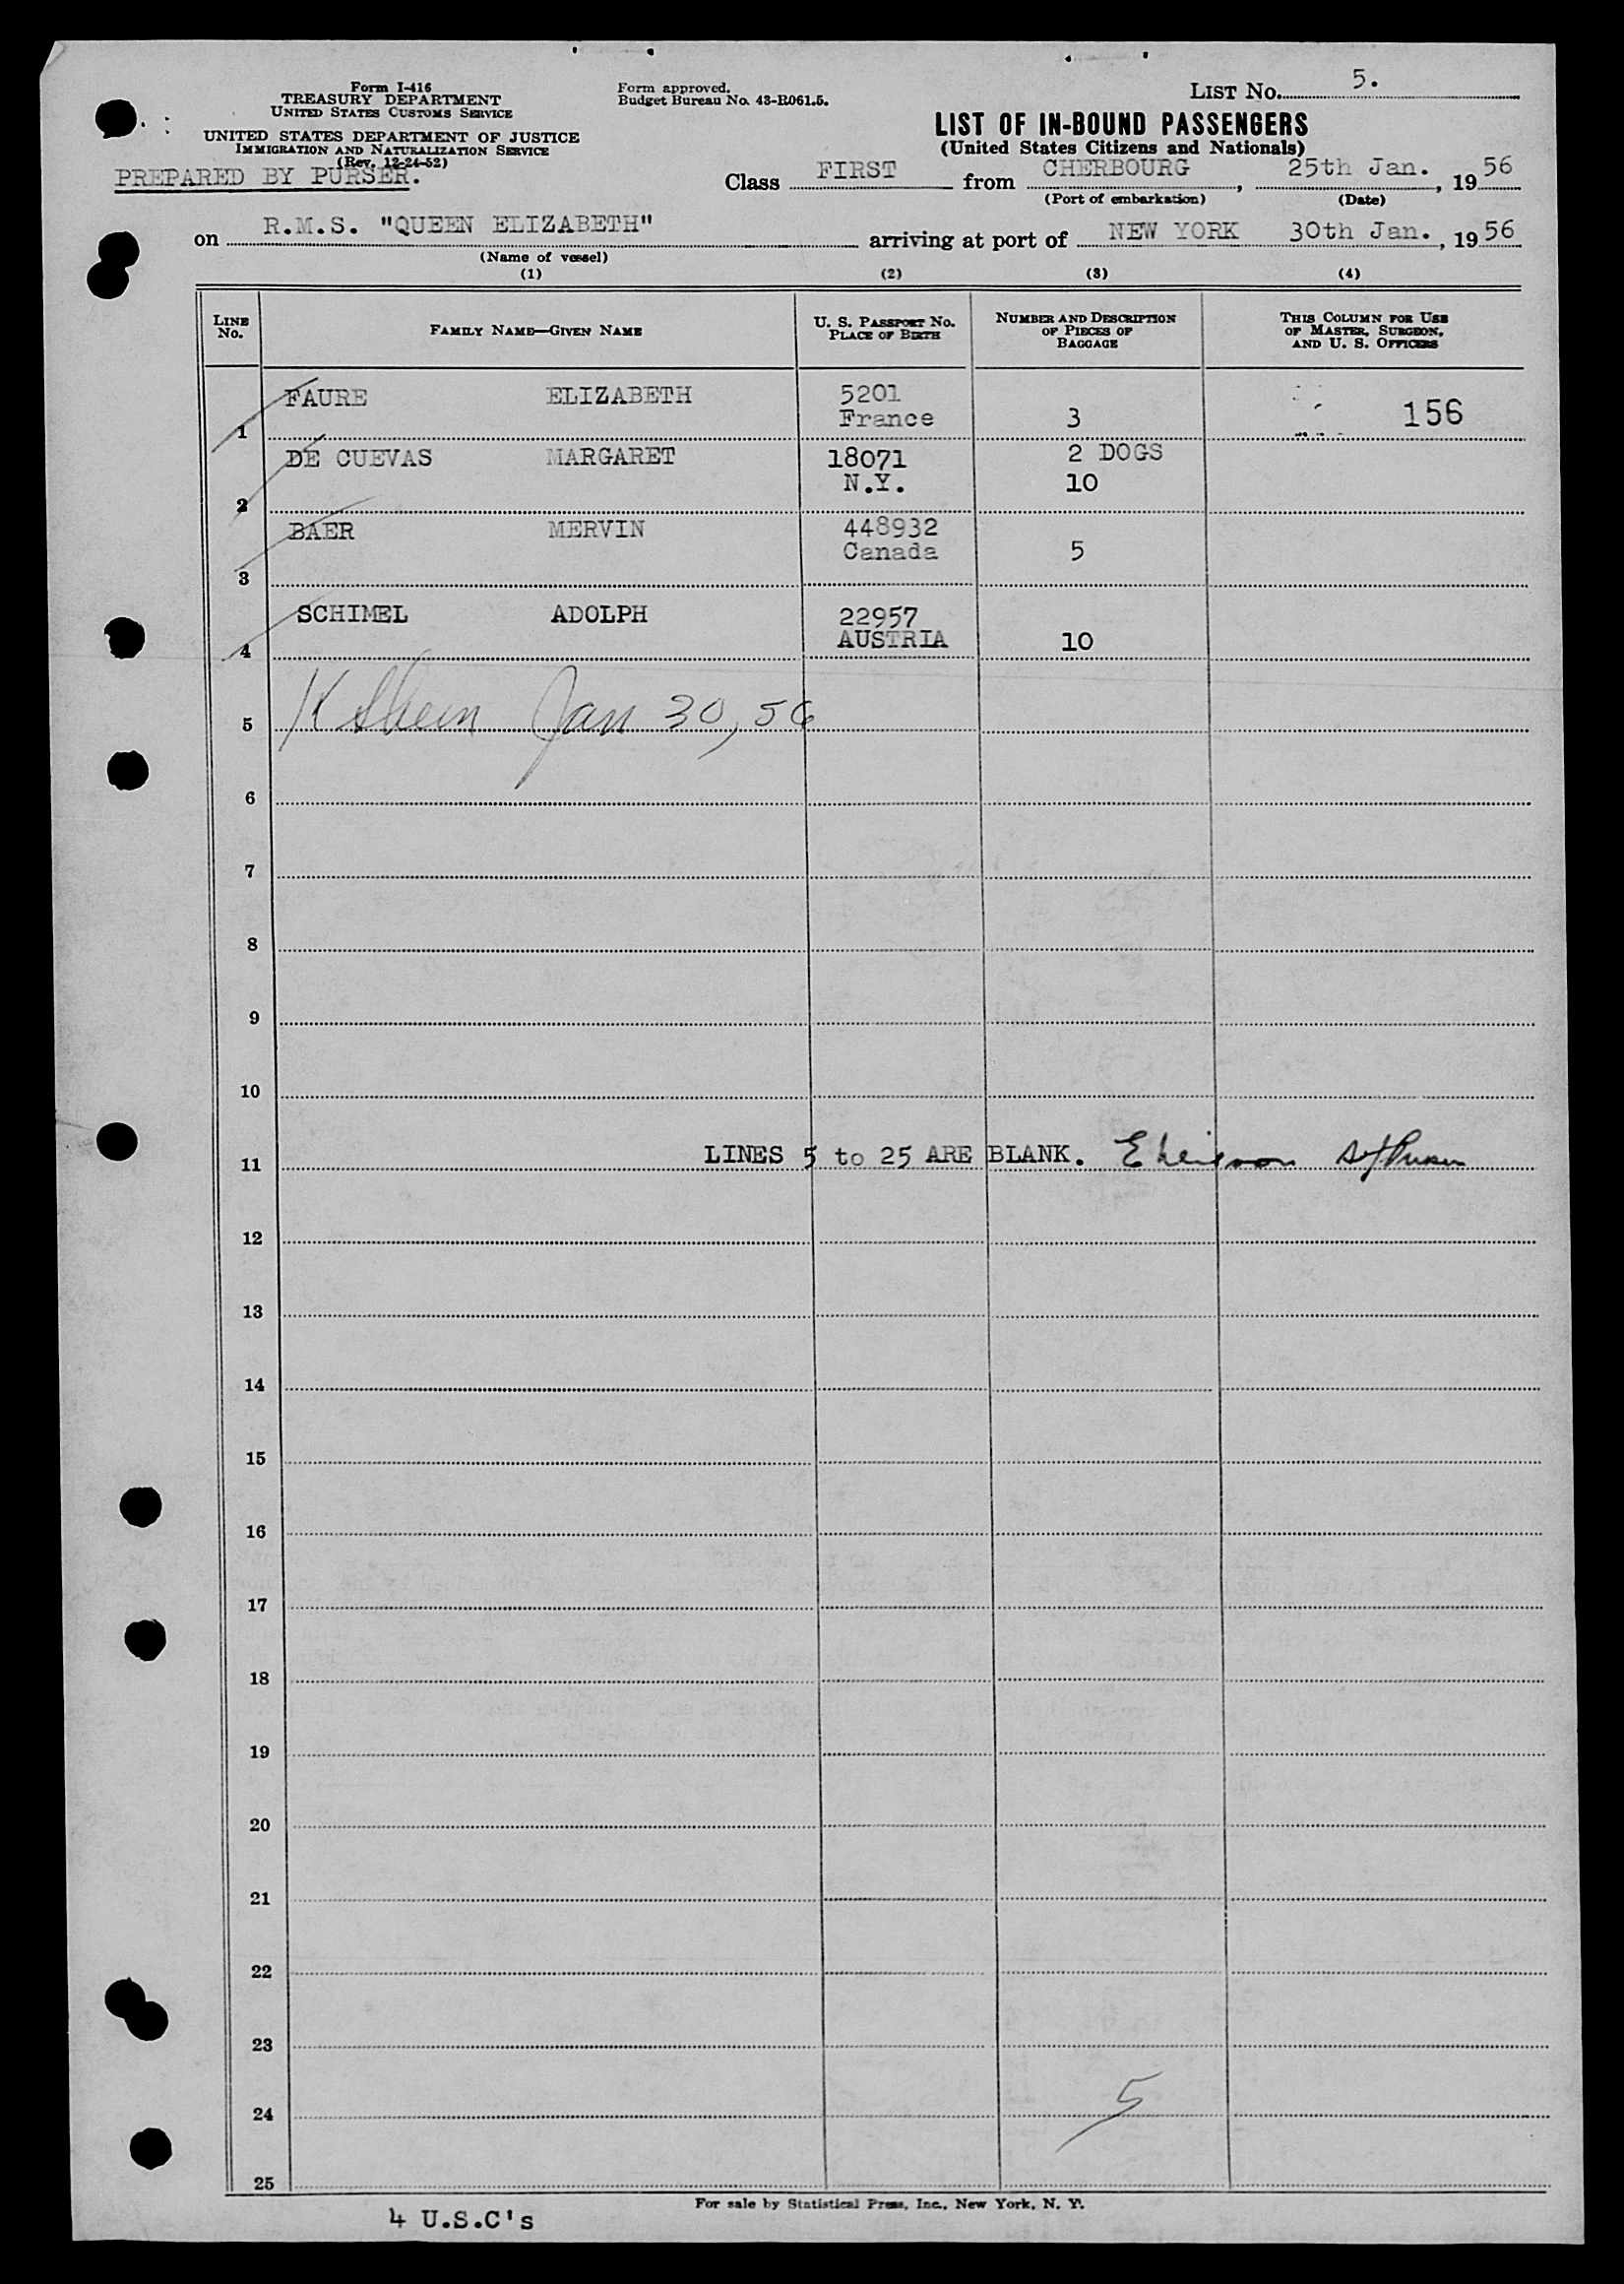 Form I-416
TREASURY DEPARTMENT
UNITED STATES CUSTOMS SERVICE
UNITED STATES DEPARTMENT OF JUSTICE
IMMIGRATION AND NATURALIZATION SERVICE
(Rev. 12-24-52)
PREPARED BY PURSER.
Form approved.
Budget Bureau No. 43-R061.5.
LIST No. 5.
LIST OF IN-BOUND PASSENGERS
(United States Citizens and Nationals)
Class FIRST from CHERBOURG, 25th Jan., 1956
(Port of embarkation) (Date)
on R.M.S. "QUEEN ELIZABETH" arriving at port of NEW YORK 30th Jan., 1956
(Name of vessel)
(1) (2) (3) (4)
LINE No. FAMILY NAME—GIVEN NAME U. S. PASSPORT No. PLACE OF BIRTH NUMBER AND DESCRIPTION OF PIECES OF BAGGAGE THIS COLUMN FOR USE OF MASTER, SURGEON, AND U. S. OFFICERS
1 FAURE ELIZABETH 5201 France 3 156
2 DE CUEVAS MARGARET 18071 N.Y. 2 DOGS 10
3 BAER MERVIN 448932 Canada 5
4 SCHIMEL ADOLPH 22957 AUSTRIA 10
5 Jan 30, 56
6
7
8
9
10
11 LINES 5 to 25 ARE BLANK.
12
13
14
15
16
17
18
19
20
21
22
23
24 5
25
For sale by Statistical Press, Inc., New York, N. Y.
4 U.S.C's